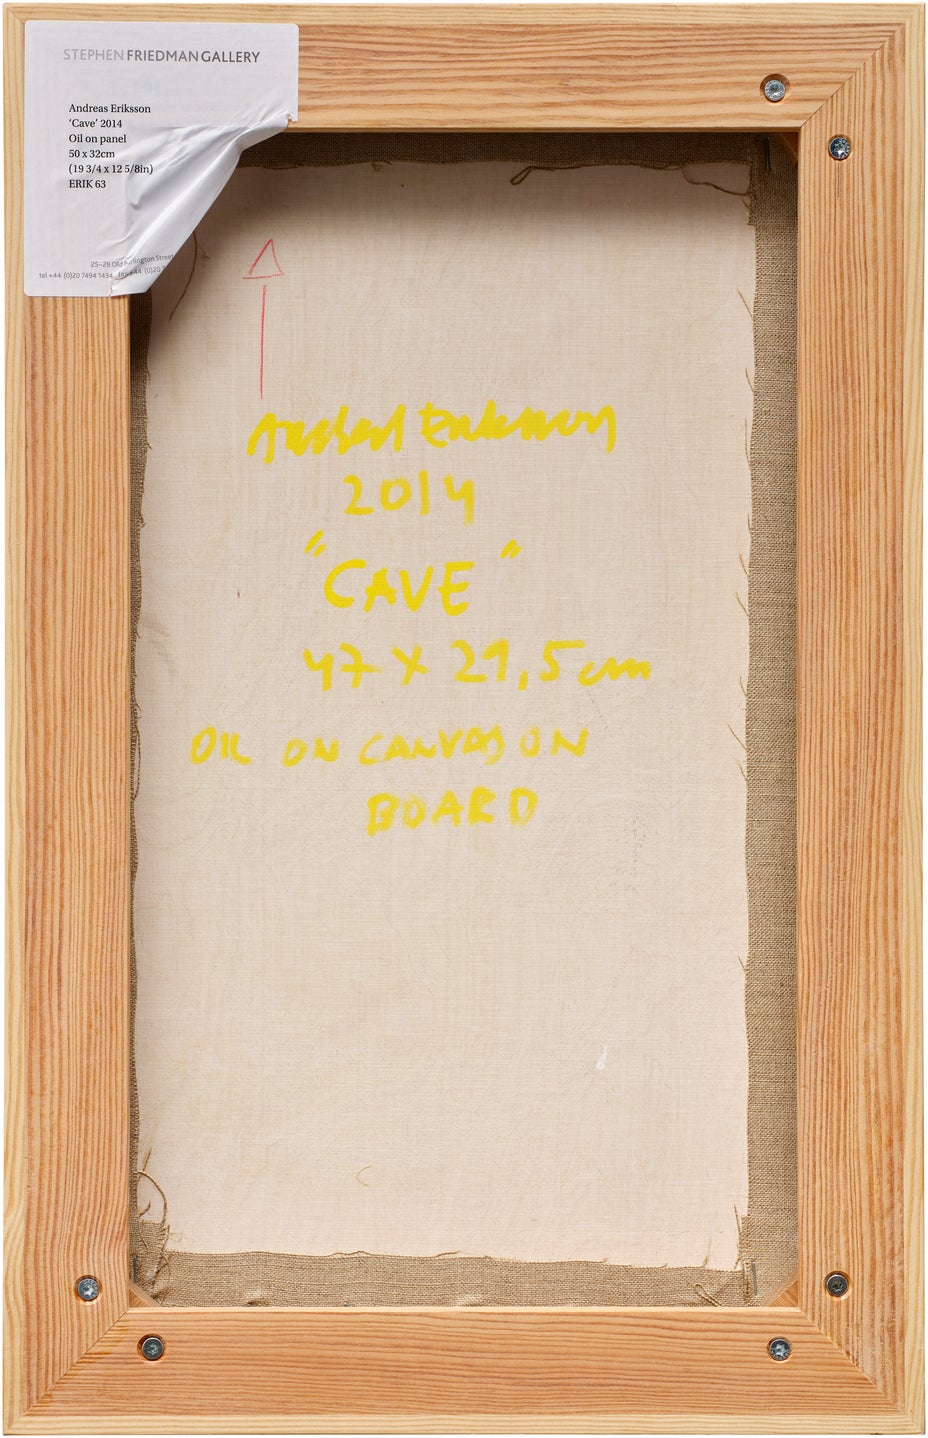 STEPHENFRIEDMANGALLERY
Andreas Eriksson
‘Cave’ 2014
Oil on panel
50 x 32cm
(19 3/4 x 12 5/8in)
ERIK 63
25–28 Old Burlington Street
tel +44 (0)20 7494 1434 +44 (0)20 7
Andreas Eriksson
2014
"CAVE"
47 X 29,5 cm
OIL ON CANVAS ON
BOARD